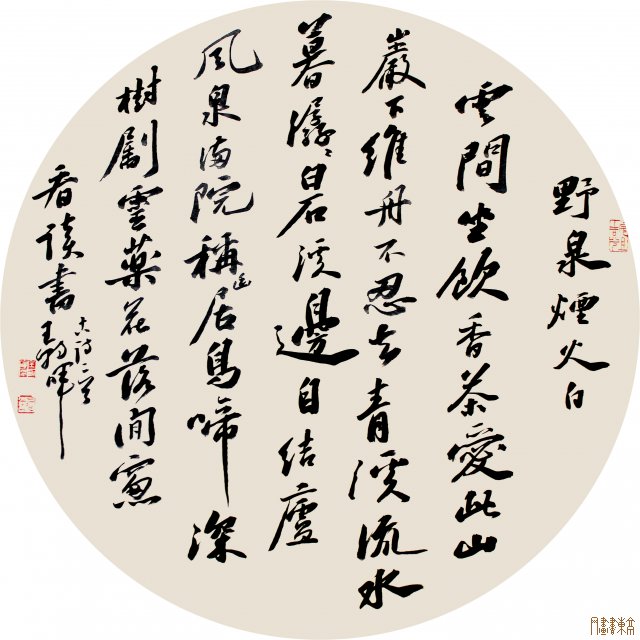 野泉煙火白
雲間坐飲香茶愛此山
巖下維舟不忍去青溪流水
暮潺潺白石溪邊自結廬
風泉滿院稱幽居鳥啼深
樹劚靈藥花落閒窗
看讀書
古詩二首
王暉